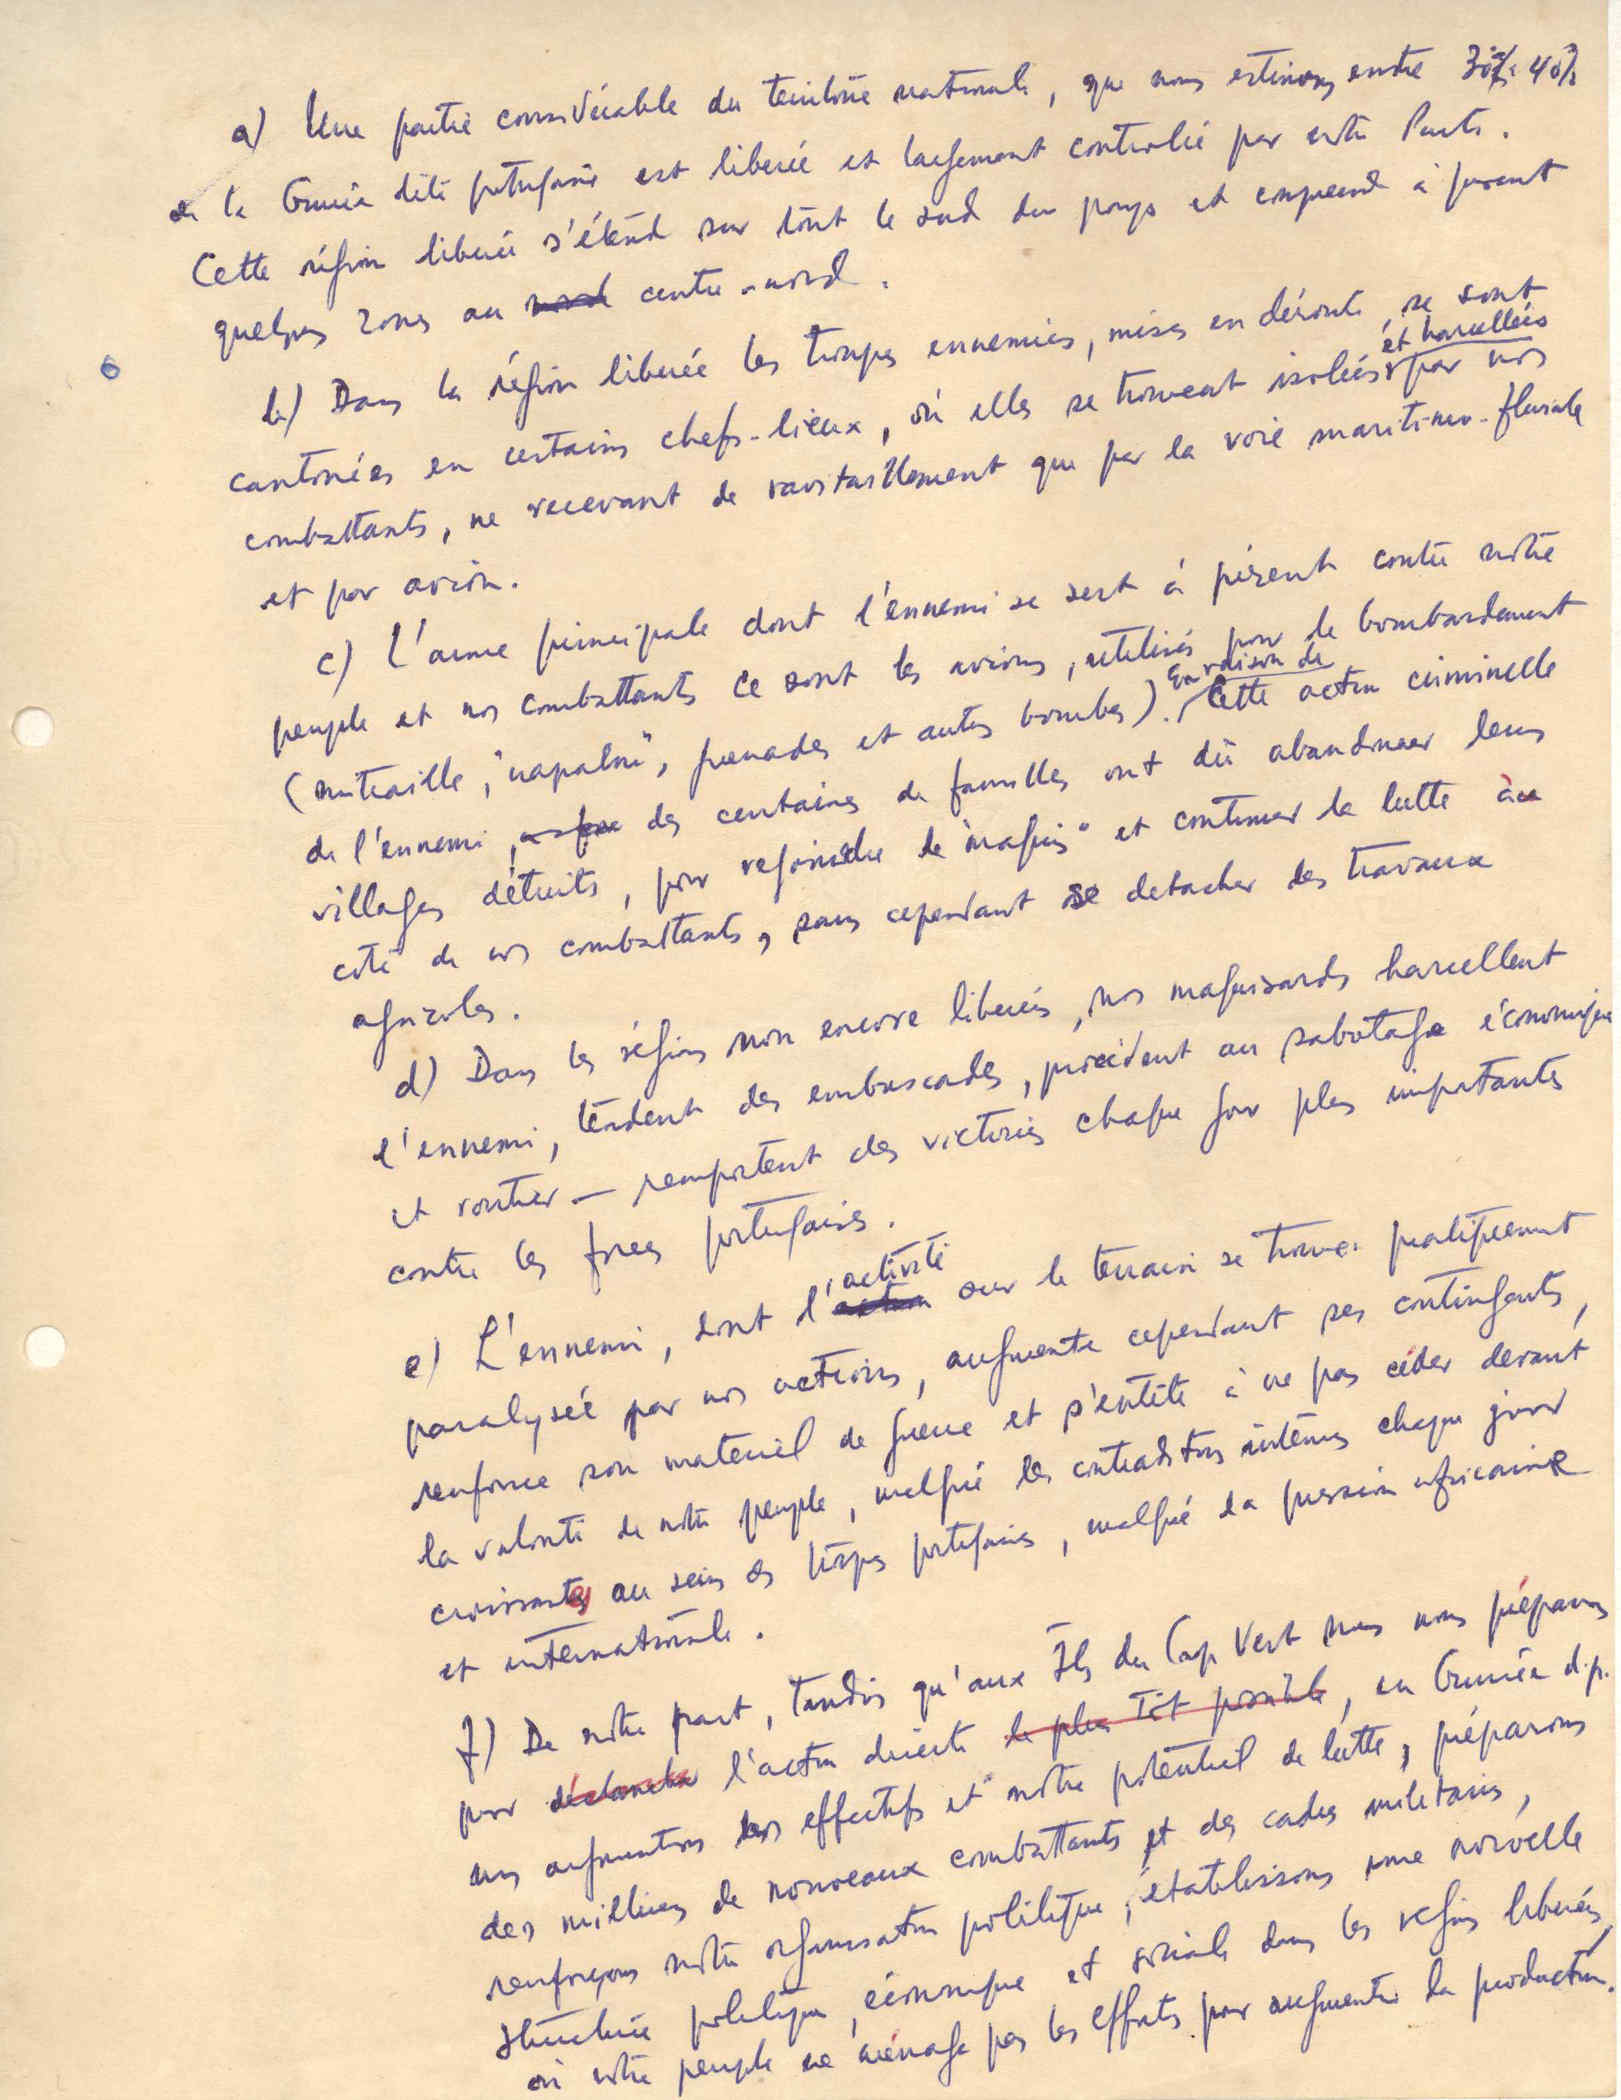 a) Une partie considérable du territoire national, que nous estimons entre 30 à 40%
de la Guinée dite portugaise est liberée et largement controlée par notre Parti.
Cette région liberée s'étend sur tout le sud du pays et comprend à present
quelques zones au centre-nord.
b) Dans la région liberée les troupes ennemies, mises en déroute, se sont
cantonées en certains chefs-lieux, où elles se trouvent isolées et harcellées par nos
combattants, ne recevant de ravitaillement que par la voie maritime-fluviale
et par avion.
c) L'arme principale dont l'ennemi se sert à présent contre notre
peuple et nos combattants ce sont les avions, utilisés pour le bombardement
(mitraille, "napalm", grenades et autres bombes). En raison de cette action criminelle
de l'ennemi, des centaines de familles ont dû abandonner leurs
villages détruits, pour rejoindre le "maquis" et continuer la lutte au
coté de nos combattants, sans cependant se detacher des travaux
agricoles.
d) Dans les régions non encore liberées, nos maquisards harcellent
l'ennemi, tendent des embuscades, procèdent au sabotage économique
et routier — remportent des victoires chaque jour plus importantes
contre les forces portugaises.
e) L'ennemi, dont l'activité sur le terrain se trouve pratiquement
paralysée par nos actions, augmente cependant ses contingents,
renforce son materiel de guerre et s'entête à ne pas céder devant
la volonté de notre peuple, malgré les contradictions internes chaque jour
croissantes au sein des troupes portugaises, malgré la pression africaine
et internationale.
f) De notre part, tandis qu'aux Iles du Cap Vert nous nous préparons
pour déclancher l'action directe le plus tôt possible, en Guinée d.p.
nous augmentons les effectifs et notre potentiel de lutte, préparons
des milliers de nouveaux combattants et des cadres militaires,
renforçons notre organisation politique, établissons une nouvelle
structure politique, économique et sociale dans les régions liberées,
où notre peuple ne ménage pas les efforts pour augmenter la production.